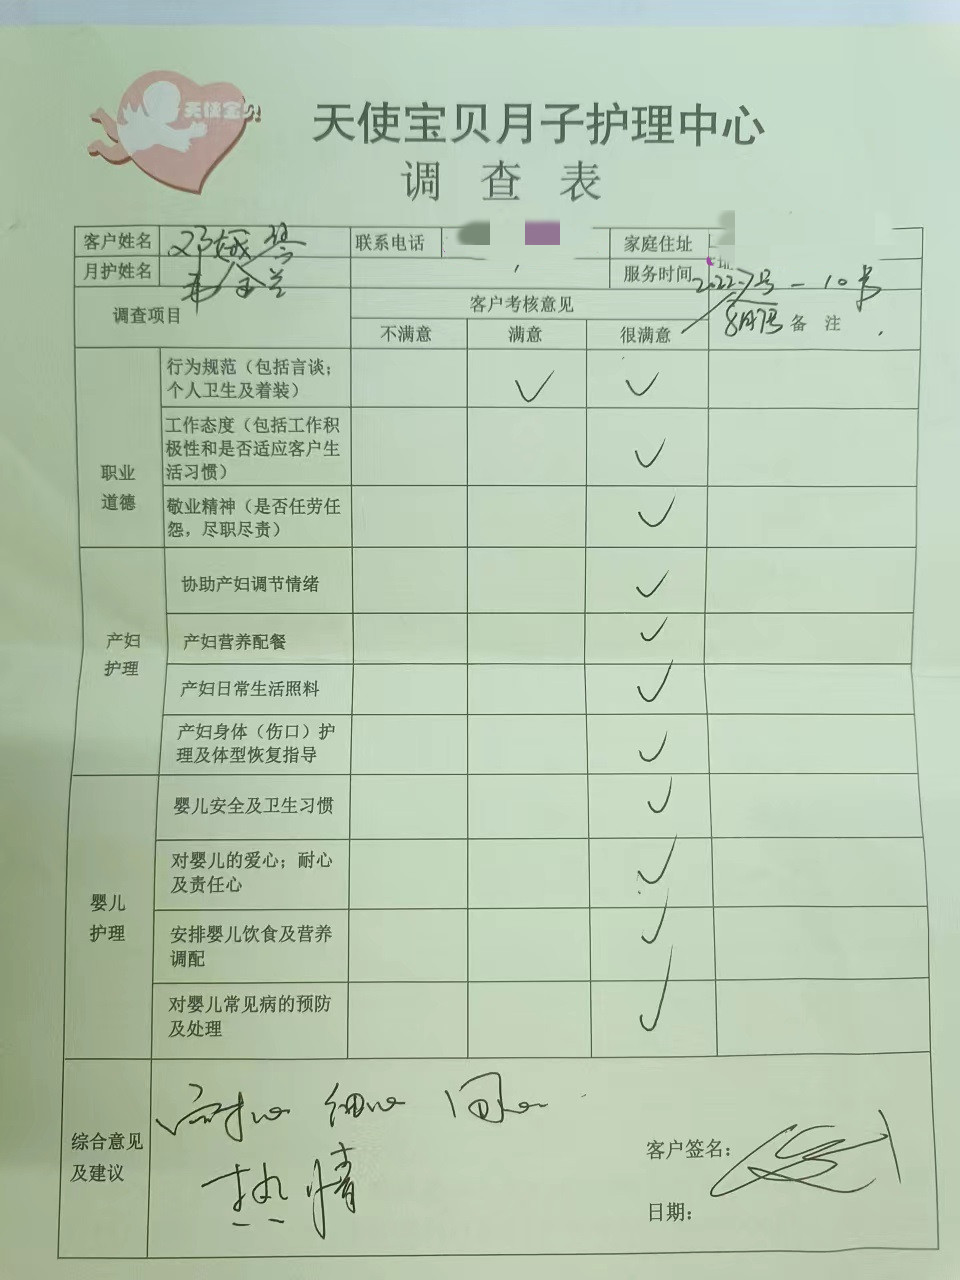 天使宝贝
天使宝贝月子护理中心
调 查 表
客户姓名 联系电话 家庭住址
月护姓名 服务时间 2022.7号 - 10号
8月7号
调查项目 客户考核意见 备 注
不满意 满意 很满意
职业
道德
行为规范（包括言谈；
个人卫生及着装）
✓ ✓
工作态度（包括工作积
极性和是否适应客户生
活习惯）
✓
敬业精神（是否任劳任
怨，尽职尽责）
✓
产妇
护理
协助产妇调节情绪 ✓
产妇营养配餐 ✓
产妇日常生活照料 ✓
产妇身体（伤口）护
理及体型恢复指导
✓
婴儿
护理
婴儿安全及卫生习惯 ✓
对婴儿的爱心；耐心
及责任心
✓
安排婴儿饮食及营养
调配
✓
对婴儿常见病的预防
及处理
✓
综合意见
及建议
耐心 细心
热情
客户签名：
日期：